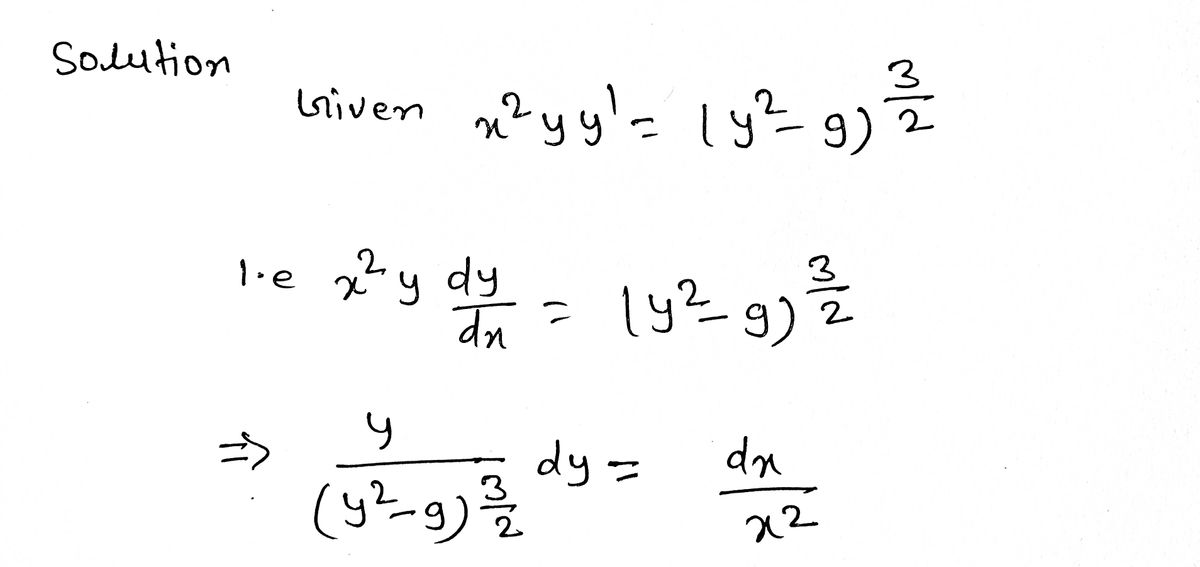 Solution
Given x² y y' = (y² - 9)^(3/2)
i.e x² y dy/dx = (y² - 9)^(3/2)
⇒ y/(y² - 9)^(3/2) dy = dx/x²